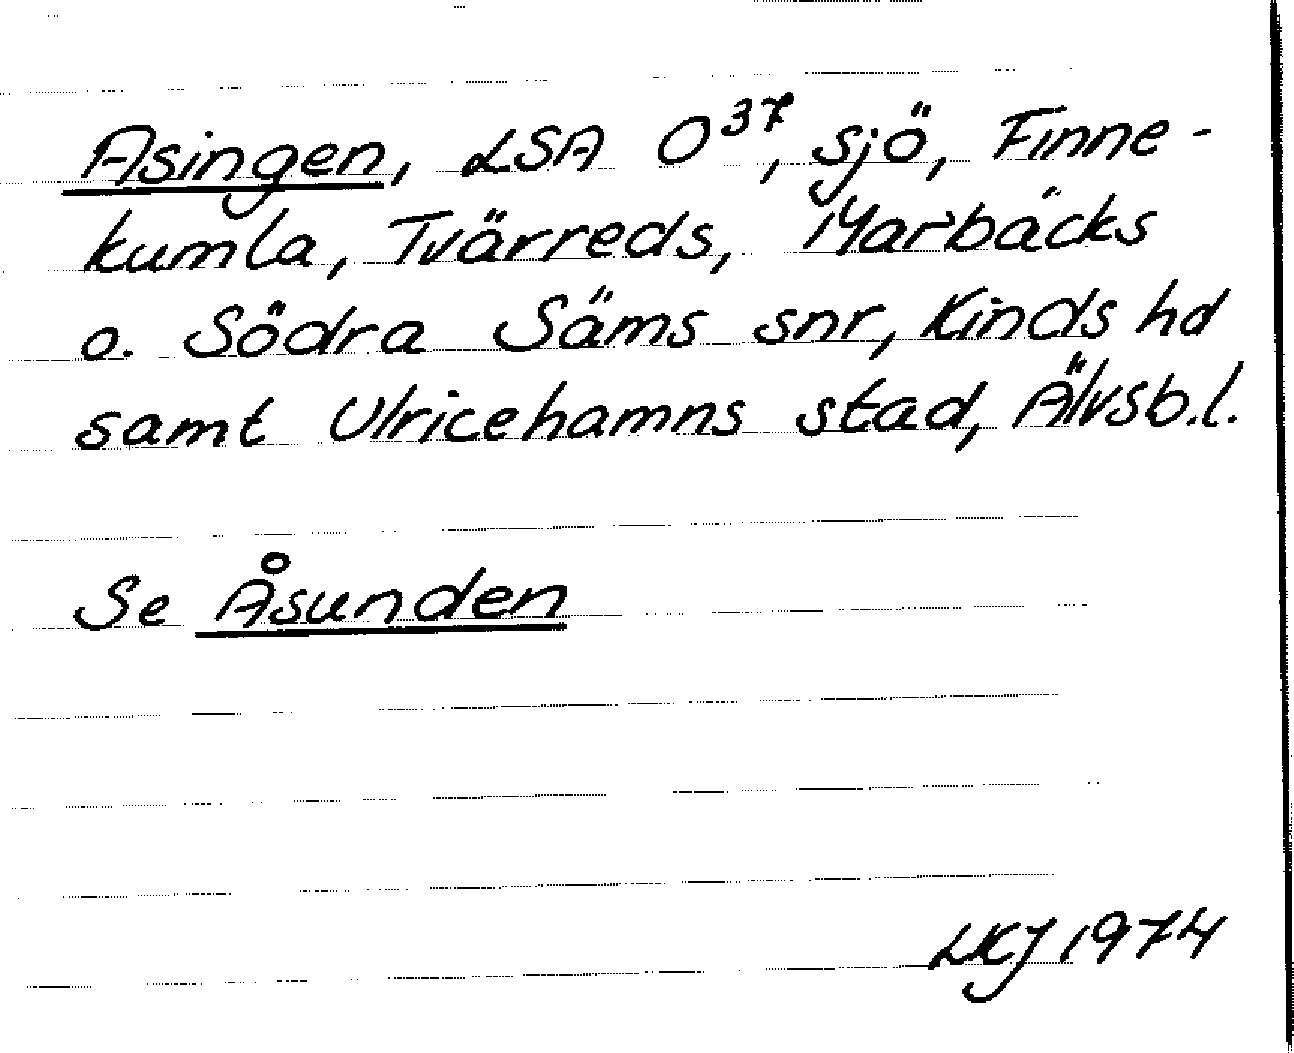 Asingen, LSA O37, sjö, Finne-
kumla, Tvärreds, Marbäcks
o. Södra Säms snr, Kinds hd
samt Ulricehamns stad, Älvsb.l.
Se Åsunden
LKJ 1974